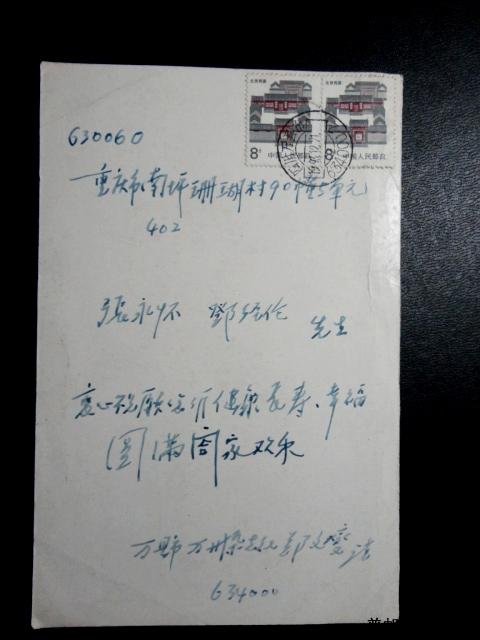 北京民居
北京民居
8分
中国人民邮政
8分
中国人民邮政
634000
630060
重庆市南坪珊瑚村90幢5单元
402
張永怀 鄧经伦 先生
衷心祝愿您们健康長寿、幸福
圆满阖家欢乐
万县市 万州杂志社 郑文
634000